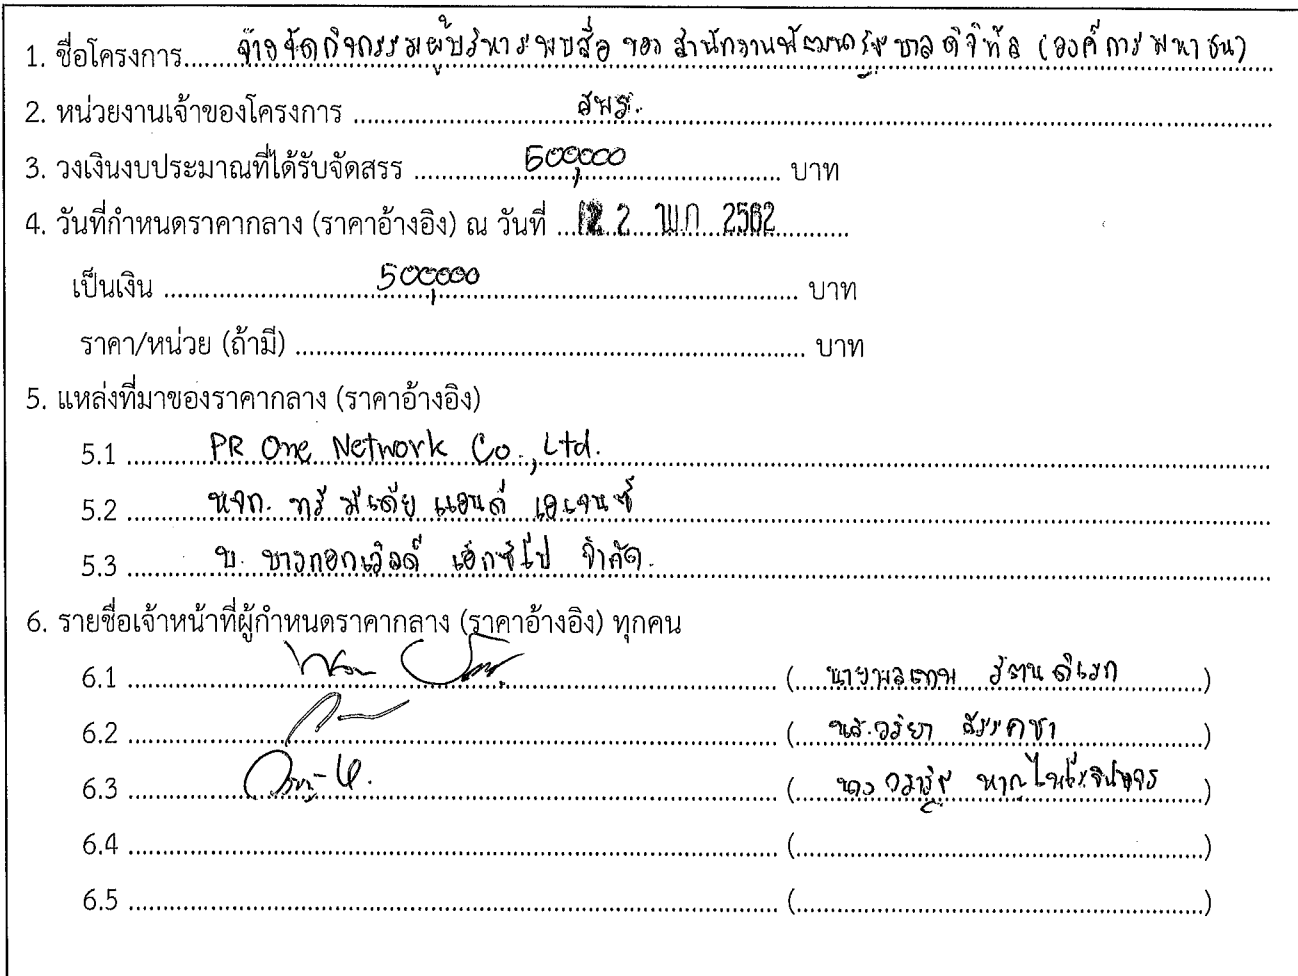 1. ชื่อโครงการ จ้างจัดกิจกรรมผู้บริหารพบสื่อ ของ สำนักงานพัฒนารัฐบาลดิจิทัล (องค์การมหาชน)
2. หน่วยงานเจ้าของโครงการ สพร.
3. วงเงินงบประมาณที่ได้รับจัดสรร 500,000 บาท
4. วันที่กำหนดราคากลาง (ราคาอ้างอิง) ณ วันที่ 2 พ.ค. 2562
เป็นเงิน 500,000 บาท
ราคา/หน่วย (ถ้ามี) บาท
5. แหล่งที่มาของราคากลาง (ราคาอ้างอิง)
5.1 PR One Network Co., Ltd.
5.2 หจก. ทรี มีเดีย แอนด์ เอเจนซี่
5.3 บ. บางกอกเวิลด์ เอ็กซ์โป จำกัด.
6. รายชื่อเจ้าหน้าที่ผู้กำหนดราคากลาง (ราคาอ้างอิง) ทุกคน
6.1 ( นายพลเทพ รัตนดิเรก )
6.2 ( นส. วริยา )
6.3 ( นาง )
6.4 ( )
6.5 ( )